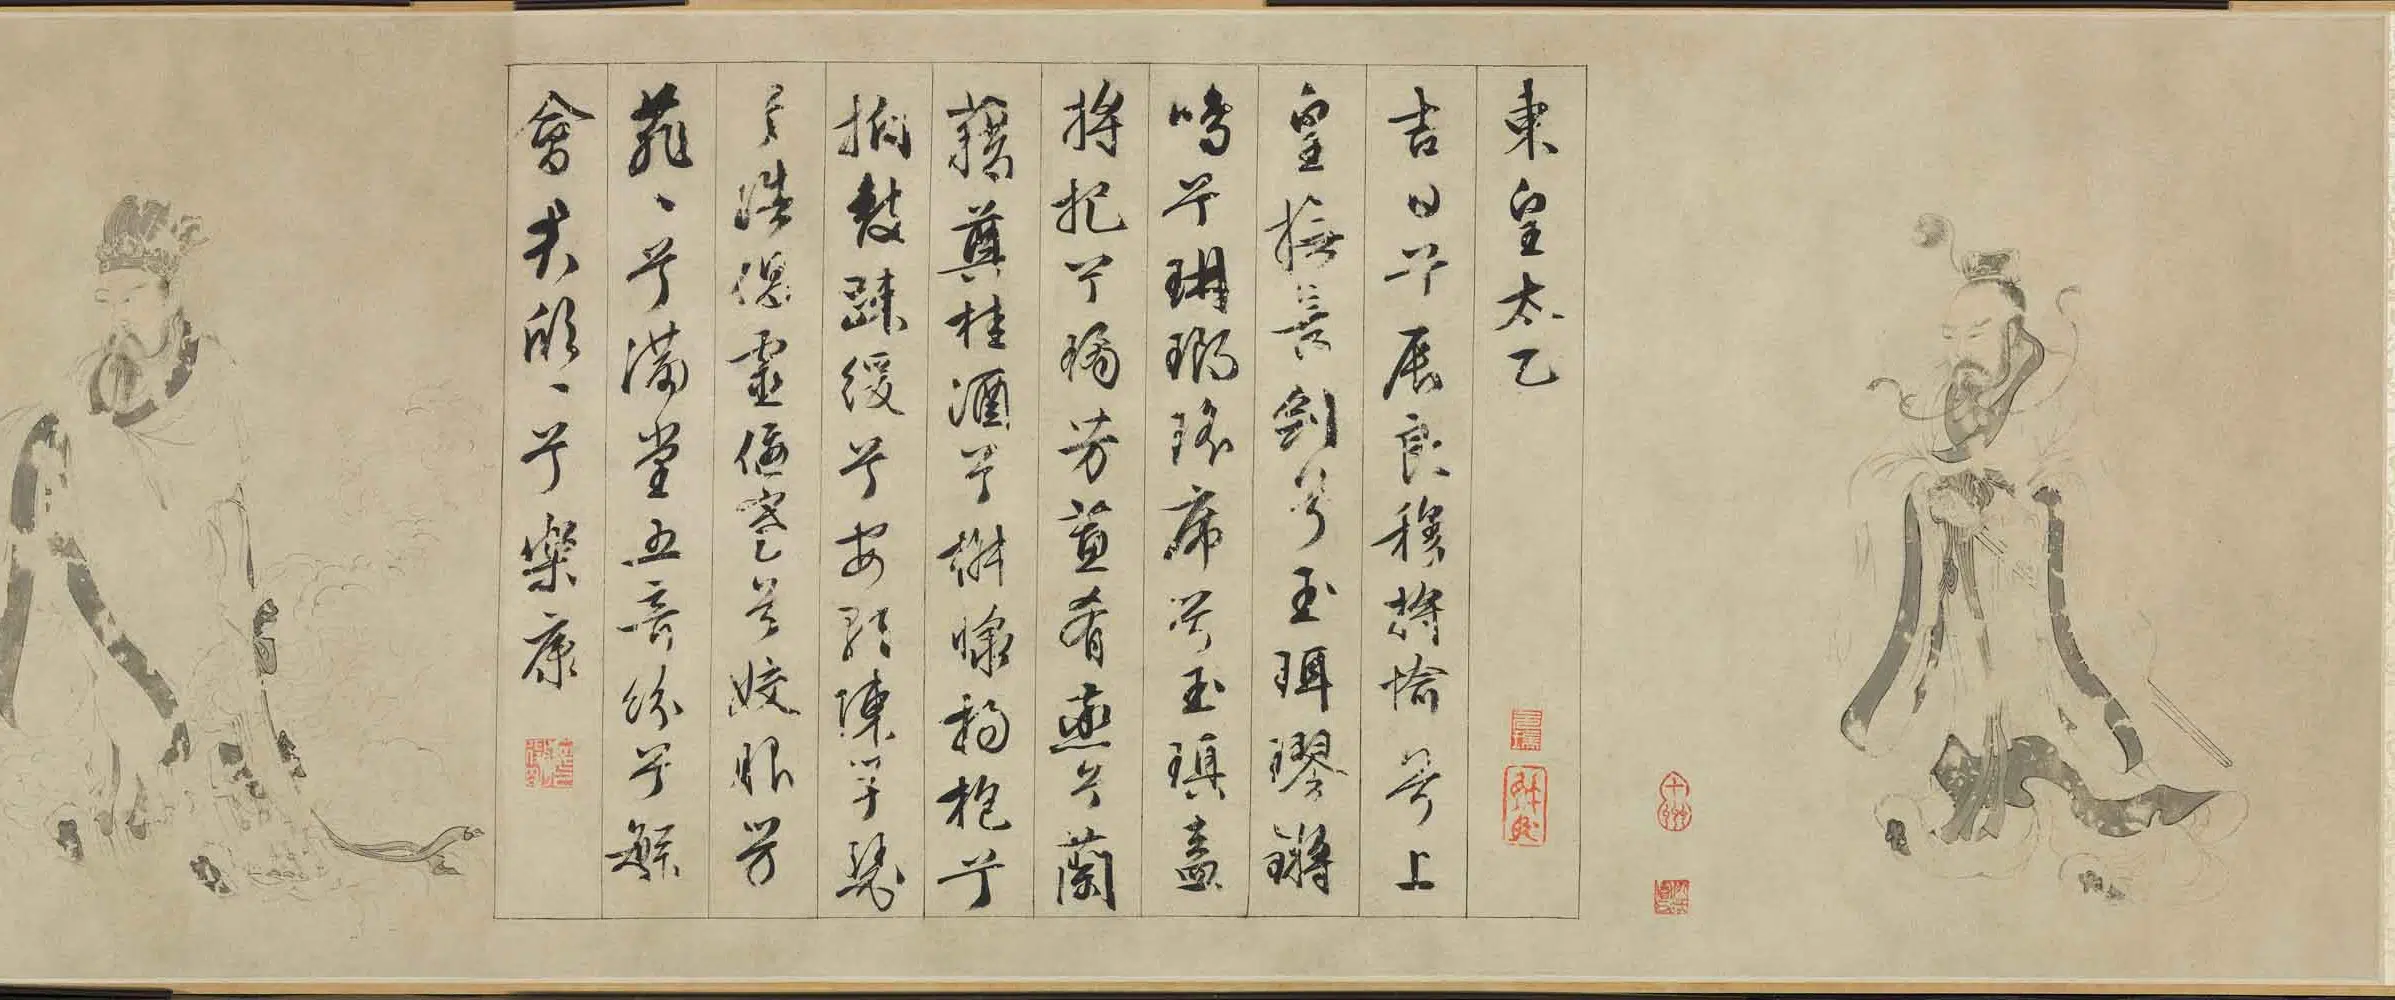 東皇太乙
吉日兮辰良穆將愉兮上
皇撫長劍兮玉珥璆鏘
鳴兮琳瑯瑤席兮玉瑱盍
將把兮瓊芳蕙肴蒸兮蘭
藉奠桂酒兮椒漿揚枹兮
拊鼓踈緩兮安歌陳竽瑟
兮浩倡靈偃蹇兮姣服芳
菲〻兮滿堂五音紛兮繁
會君欣〻兮樂康